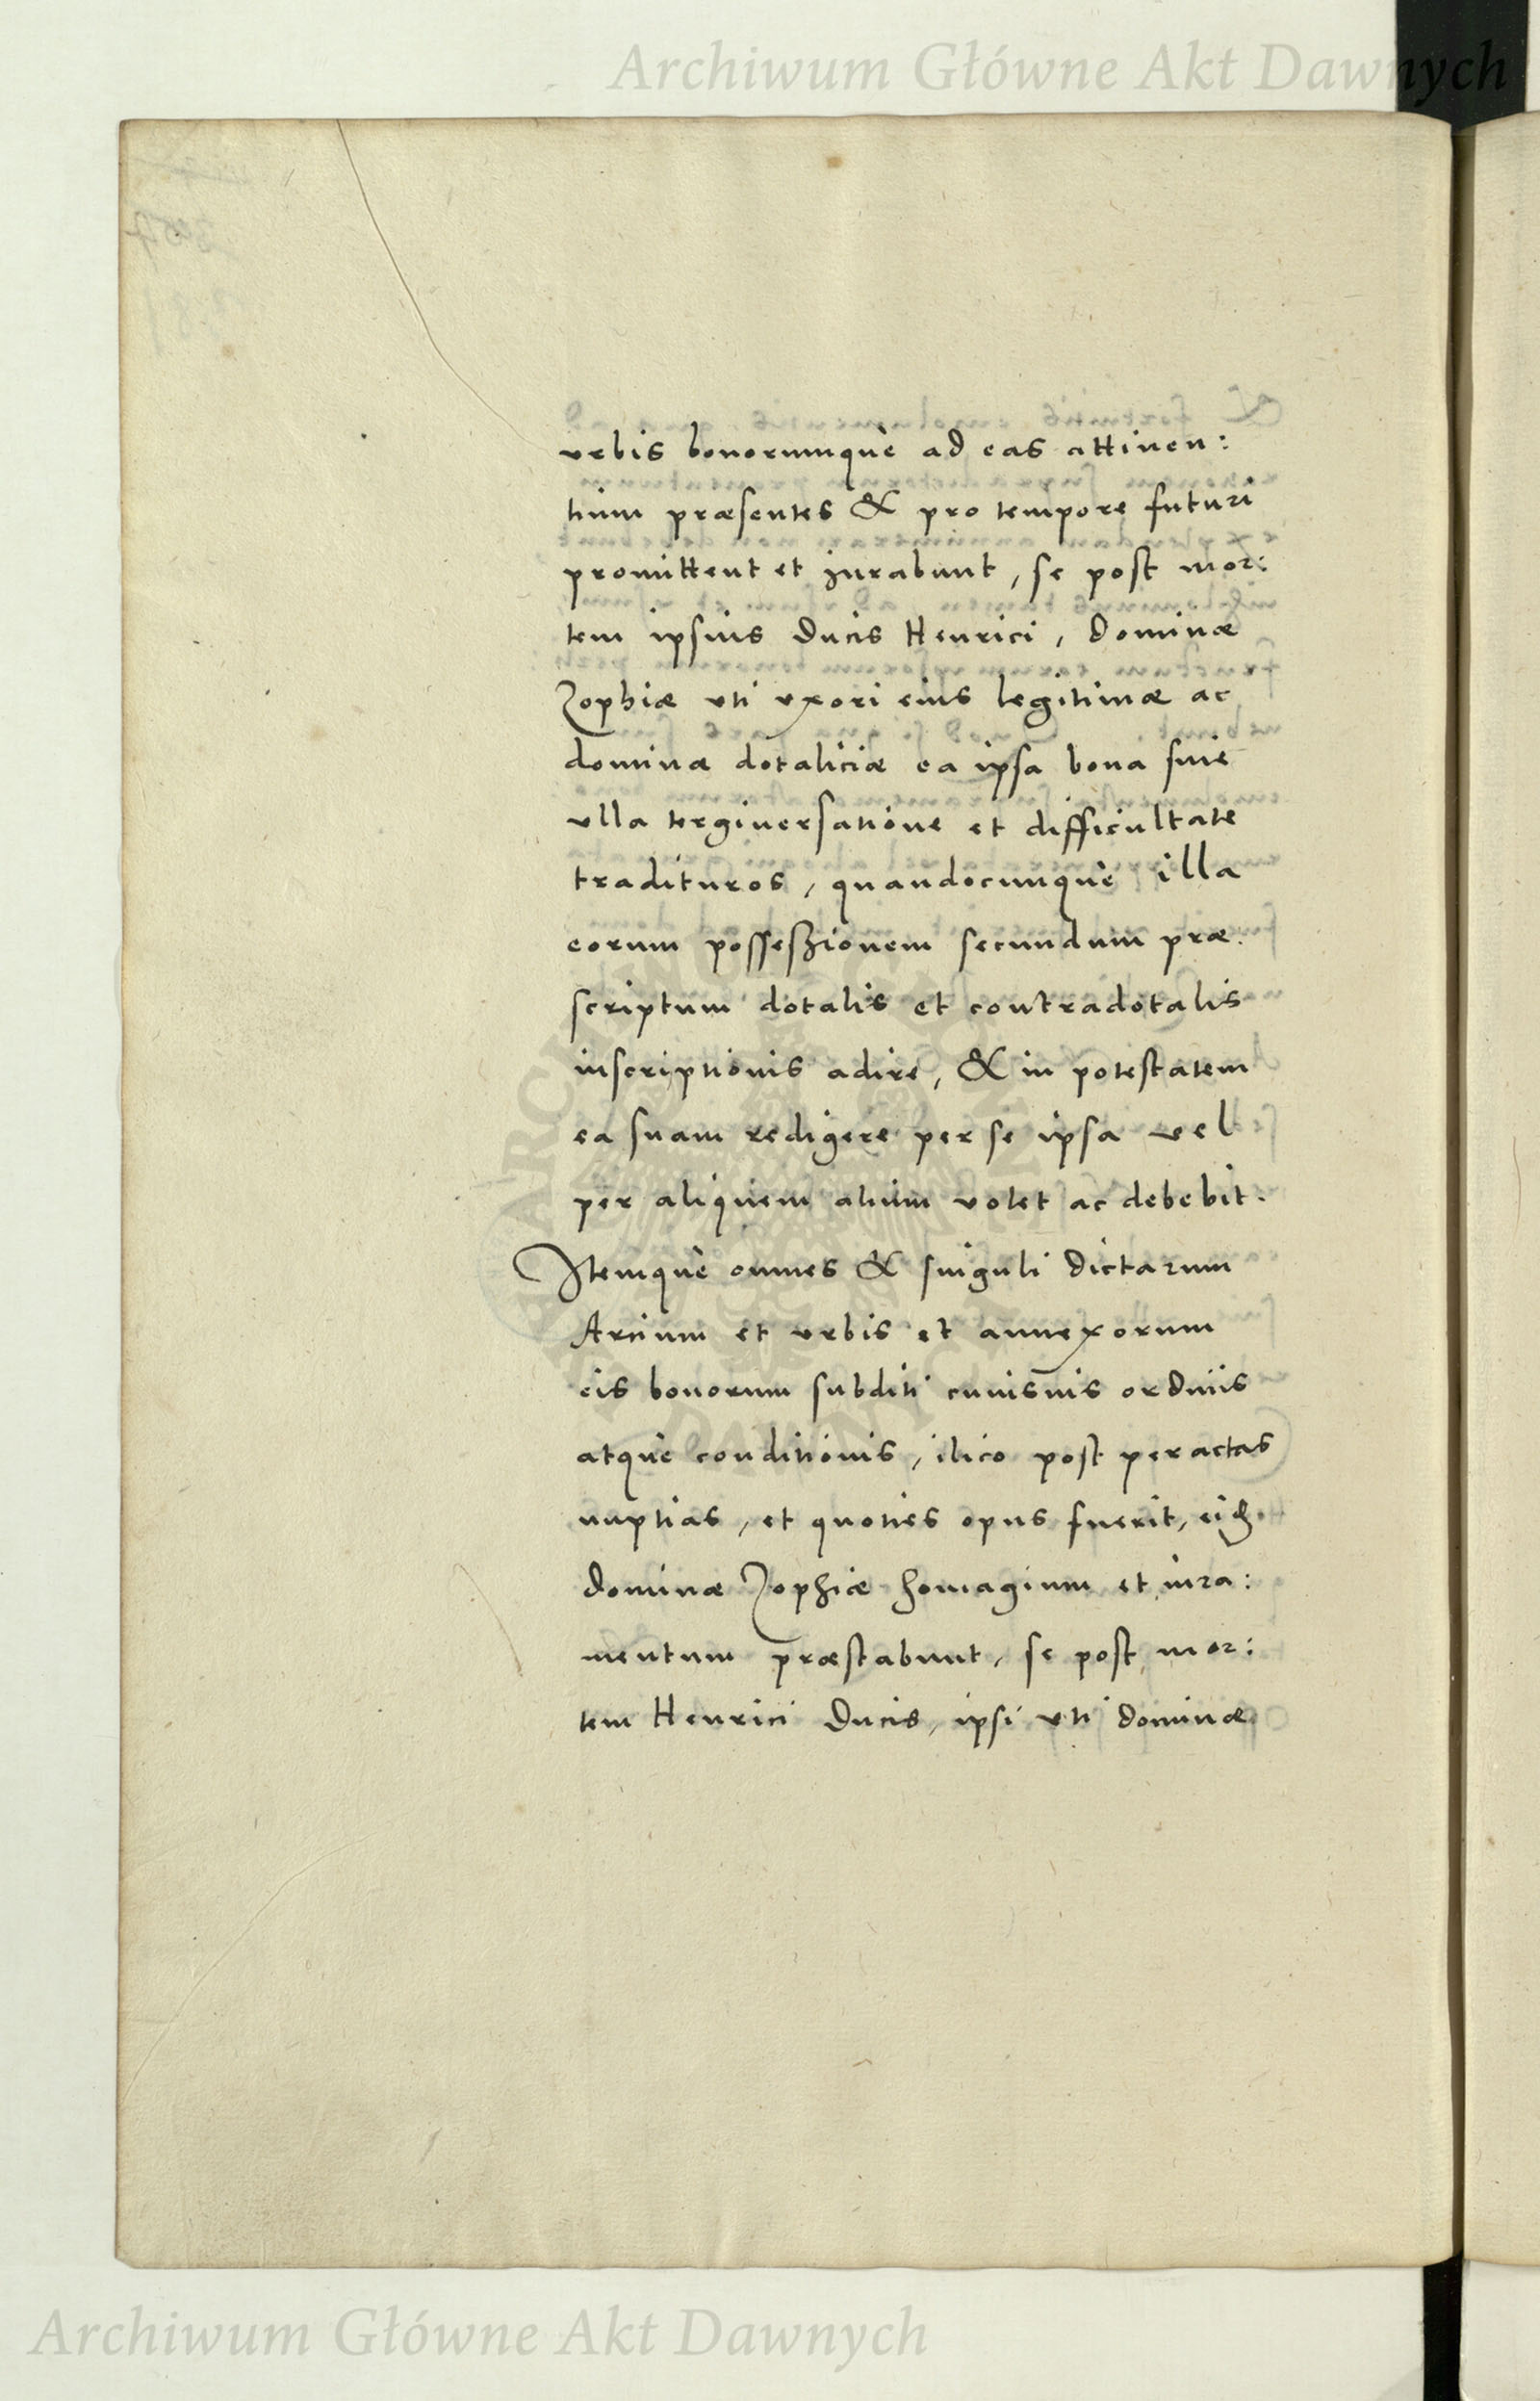 Archiwum Główne Akt Dawnych
vrbis bonorumquè ad eas attinen:
tium præsentes & pro tempore futuri
promittent et jurabunt, se post mor:
tem ipsius Ducis Henrici, Dominæ
Zophiæ vti vxori eius legitimæ ac
dominæ dotaliciæ ea ipsa bona sine
vlla tergiuersatione et difficultate
tradituros, quandocunquè illa
eorum possessionem secundum præ:
scriptum dotalis et contradotalis
inscriptionis adire, & in potestatem
ea suam redigere per se ipsa vel
per aliquem alium volet ac debebit.
Itemquè omnes & singuli dictarum
Arcium et vrbis et annexorum
eis bonorum subditi cuiusuis ordinis
atquè conditionis, ilico post peractas
nuptias, et quoties opus fuerit,
dominæ Zophiæ homagium et iura:
mentum præstabunt, se post mor:
tem Henrici Ducis, ipsi vti dominæ
Archiwum Główne Akt Dawnych